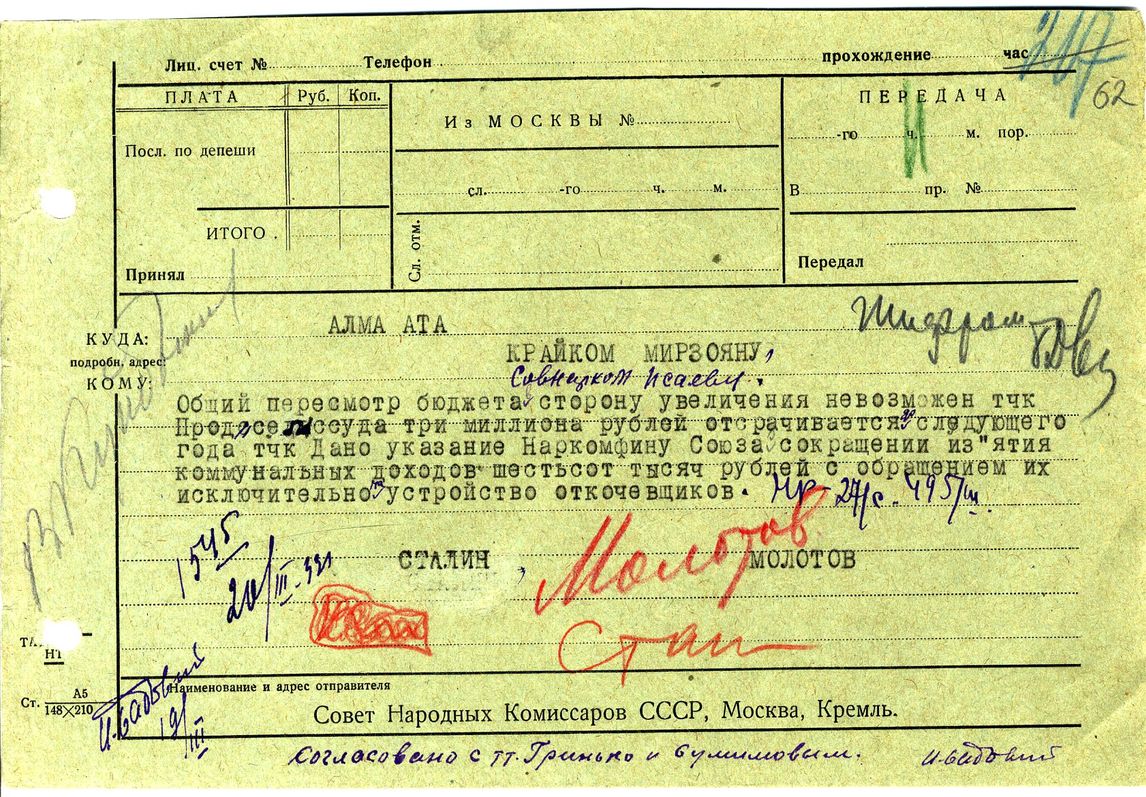 Лиц. счет № Телефон прохождение час
207
62
ПЛАТА Руб. Коп.
Посл. по депеши
ИТОГО
Принял
Из МОСКВЫ №
сл. -го ч. м.
Сл. отм.
ПЕРЕДАЧА
-го ч. м. пор.
В пр. №
Передал
КУДА: АЛМА АТА
Шифром
подробн. адрес:
КОМУ:
КРАЙКОМ МИРЗОЯНУ,
Совнарком Исаеву.
Общий пересмотр бюджета сторону увеличения невозможен тчк
Продсемссуда три миллиона рублей отсрачивается до следующего
года тчк Дано указание Наркомфину Союза сокращении из"ятия
коммунальных доходов шестьсот тысяч рублей с обращением их
исключительно устройство откочевщиков.
СТАЛИН, МОЛОТОВ
Молотов
Стал
1545
20/III-33г
Ст. А5
148×210
Наименование и адрес отправителя
Совет Народных Комиссаров СССР, Москва, Кремль.
19/III
Согласовано с тт. Гринько и Сулимовым.